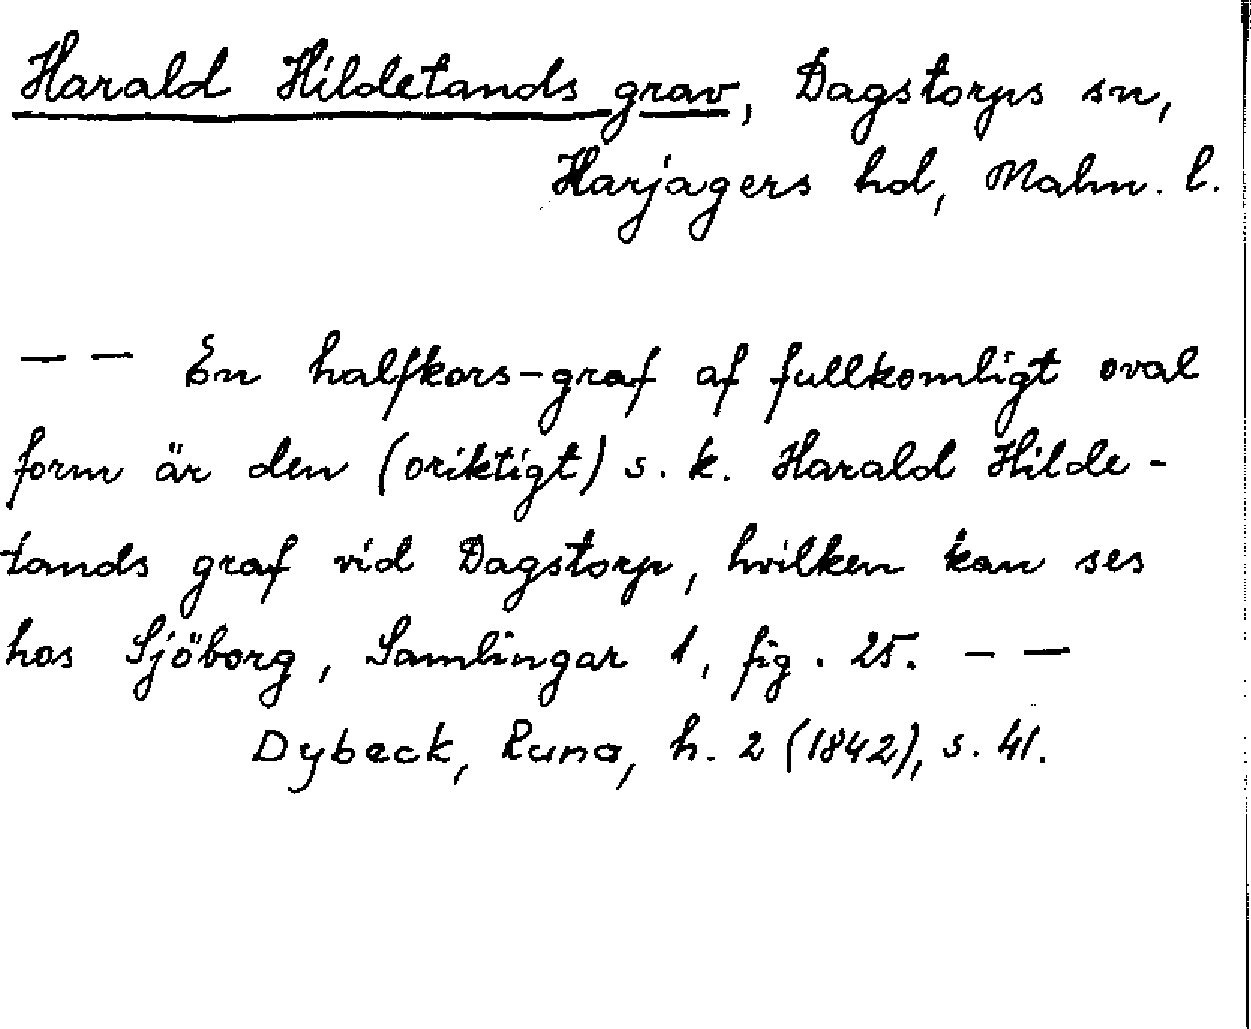 Harald Hildetands grav, Dagstorps sn,
Harjagers hd, Malm. l.
— — En halfkors-graf af fullkomligt oval
form är den (oriktigt) s. k. Harald Hilde-
tands graf vid Dagstorp, hvilken kan ses
hos Sjöborg, Samlingar 1, fig. 25. — —
Dybeck, Runa, h. 2 (1842), s. 41.